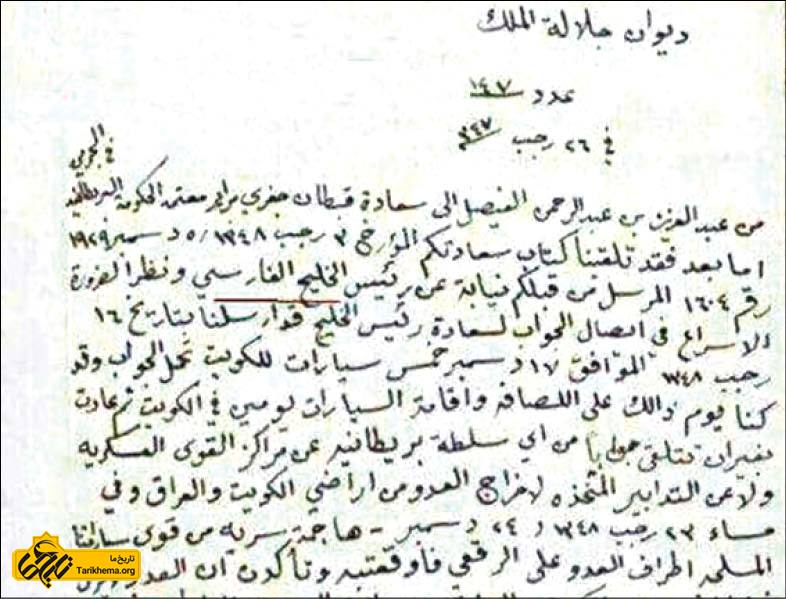 ديوان جلالة الملك
عدد ١٤٧
في ٢٦ رجب
في الحرمي
من عبد العزيز بن عبد الرحمن الفيصل الى سعادة قبطان جفري برايد معتمد الحكومة البريطانية
اما بعد فقد تلقينا كتاب سعادتكم المؤرخ ٣ رجب ١٣٤٨ / ٥ دسمبر ١٩٢٩
رقم ١٦٠٤ المرسل من قبلكم نيابة عن رئيس الخليج الفارسي ونظرا لضرورة
الاسراع في ايصال الجواب لسعادة رئيس الخليج قد ارسلنا بتاريخ ١٦
رجب ١٣٤٨ الموافق ١٧ دسمبر خمس سيارات للكويت تحمل الجواب وقد
كنا يوم ذالك على اللصافه واقامة السيارات يومين في الكويت ثم عادت
بغيران تتلقى جوابا من اي سلطة بريطانيه عن مراكز القوى العسكريه
ولا عن التدابير المتخذه لاخراج العدو من اراضي الكويت والعراق وفي
مساء ٢٣ رجب ١٣٤٨ / ٢٤ دسمبر - هاجمة سريه من قوى سياراتنا
المسلحه اطراف العدو على الرقعي فاوقعتبه وتأكدن ان العدو
تاریخ ما
Tarikhema.org